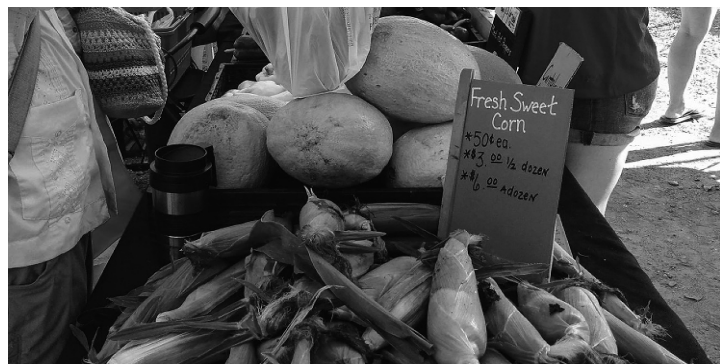 Fresh Sweet
Corn
*50¢ ea.
*$3.00 1/2 dozen
*$6.00 A dozen